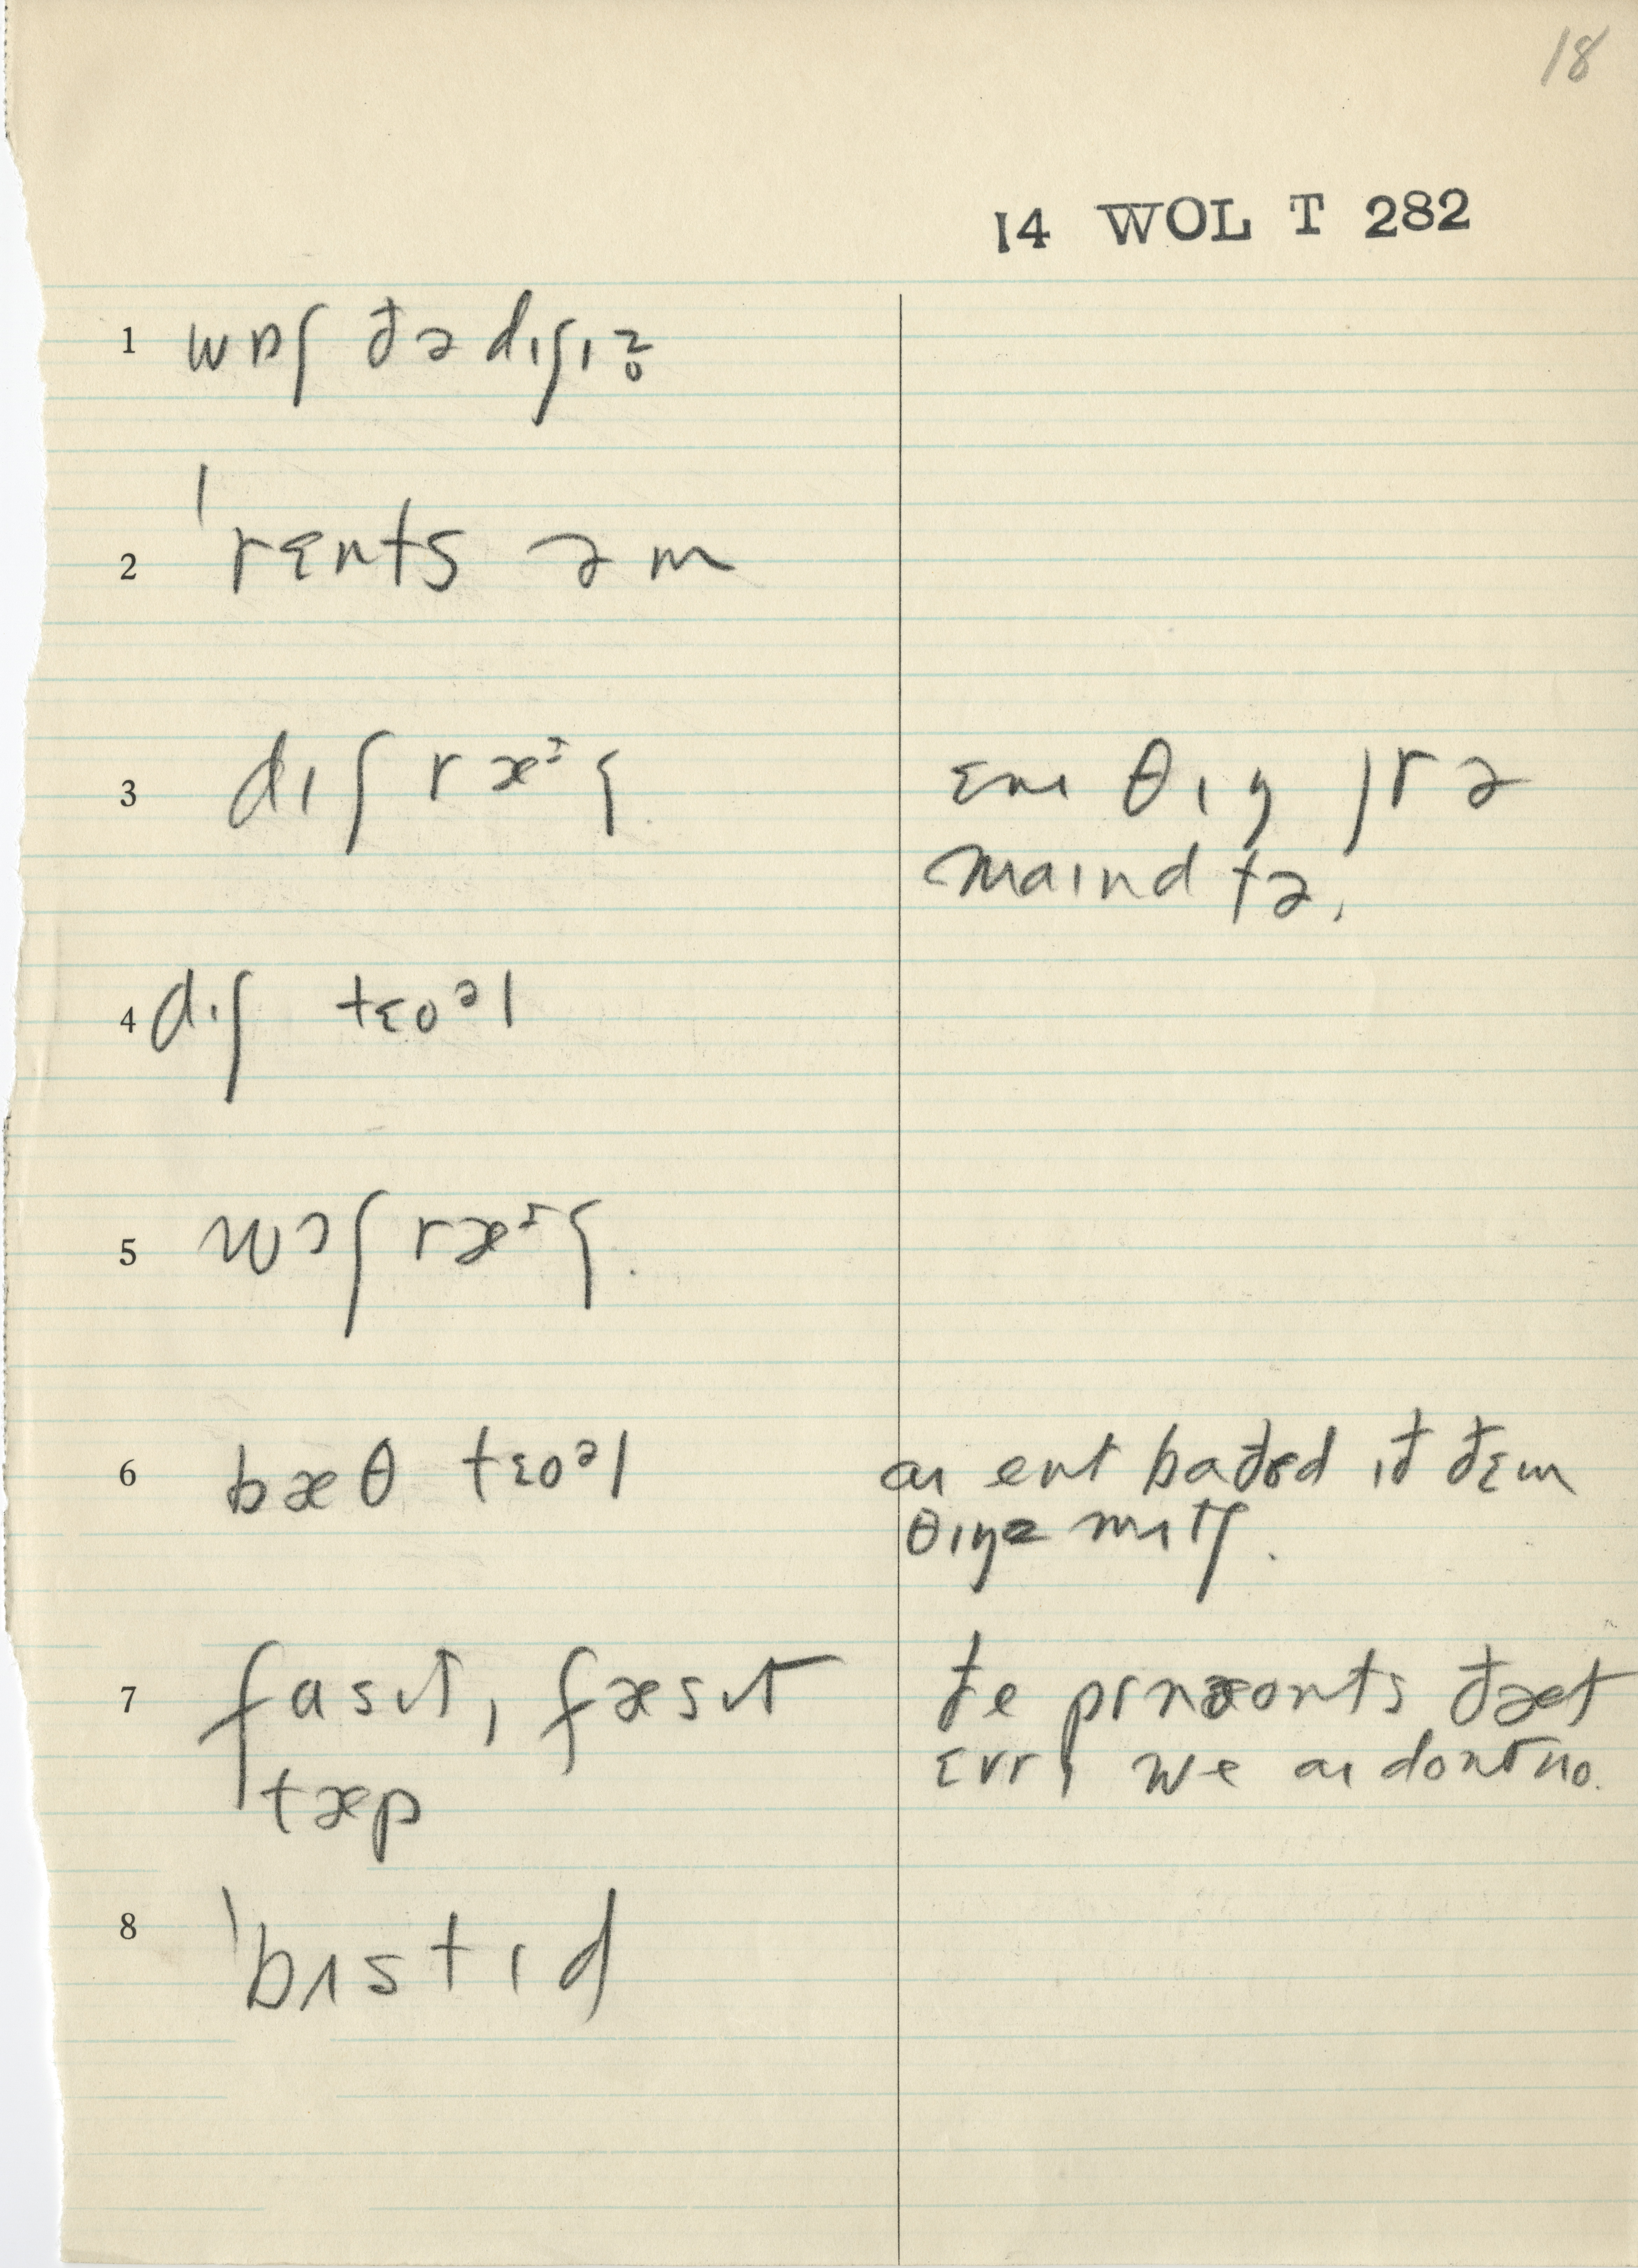 18
14 WOL T 282
1 wɒʃ ðə dɪʃɪz̥
2 ˈrɛnts əm
3 dɪʃ ræᶦʃ.
ɛnɪ θɪŋ jɪr ə
maɪnd tə,
4 dɪʃ tɛoᵊl
5 wɔʃ ræᶦʃ.
6 bæθ tɛoᵊl
aɪ ent baðəd ɪð ðɛm
θɪŋz mɪtʃ.
7 fasɪt, fæsɪt
tæp
ðe prnæonts ðæt
ɛvrɪ we aɪ dont no.
8 ˈbɪstɪd